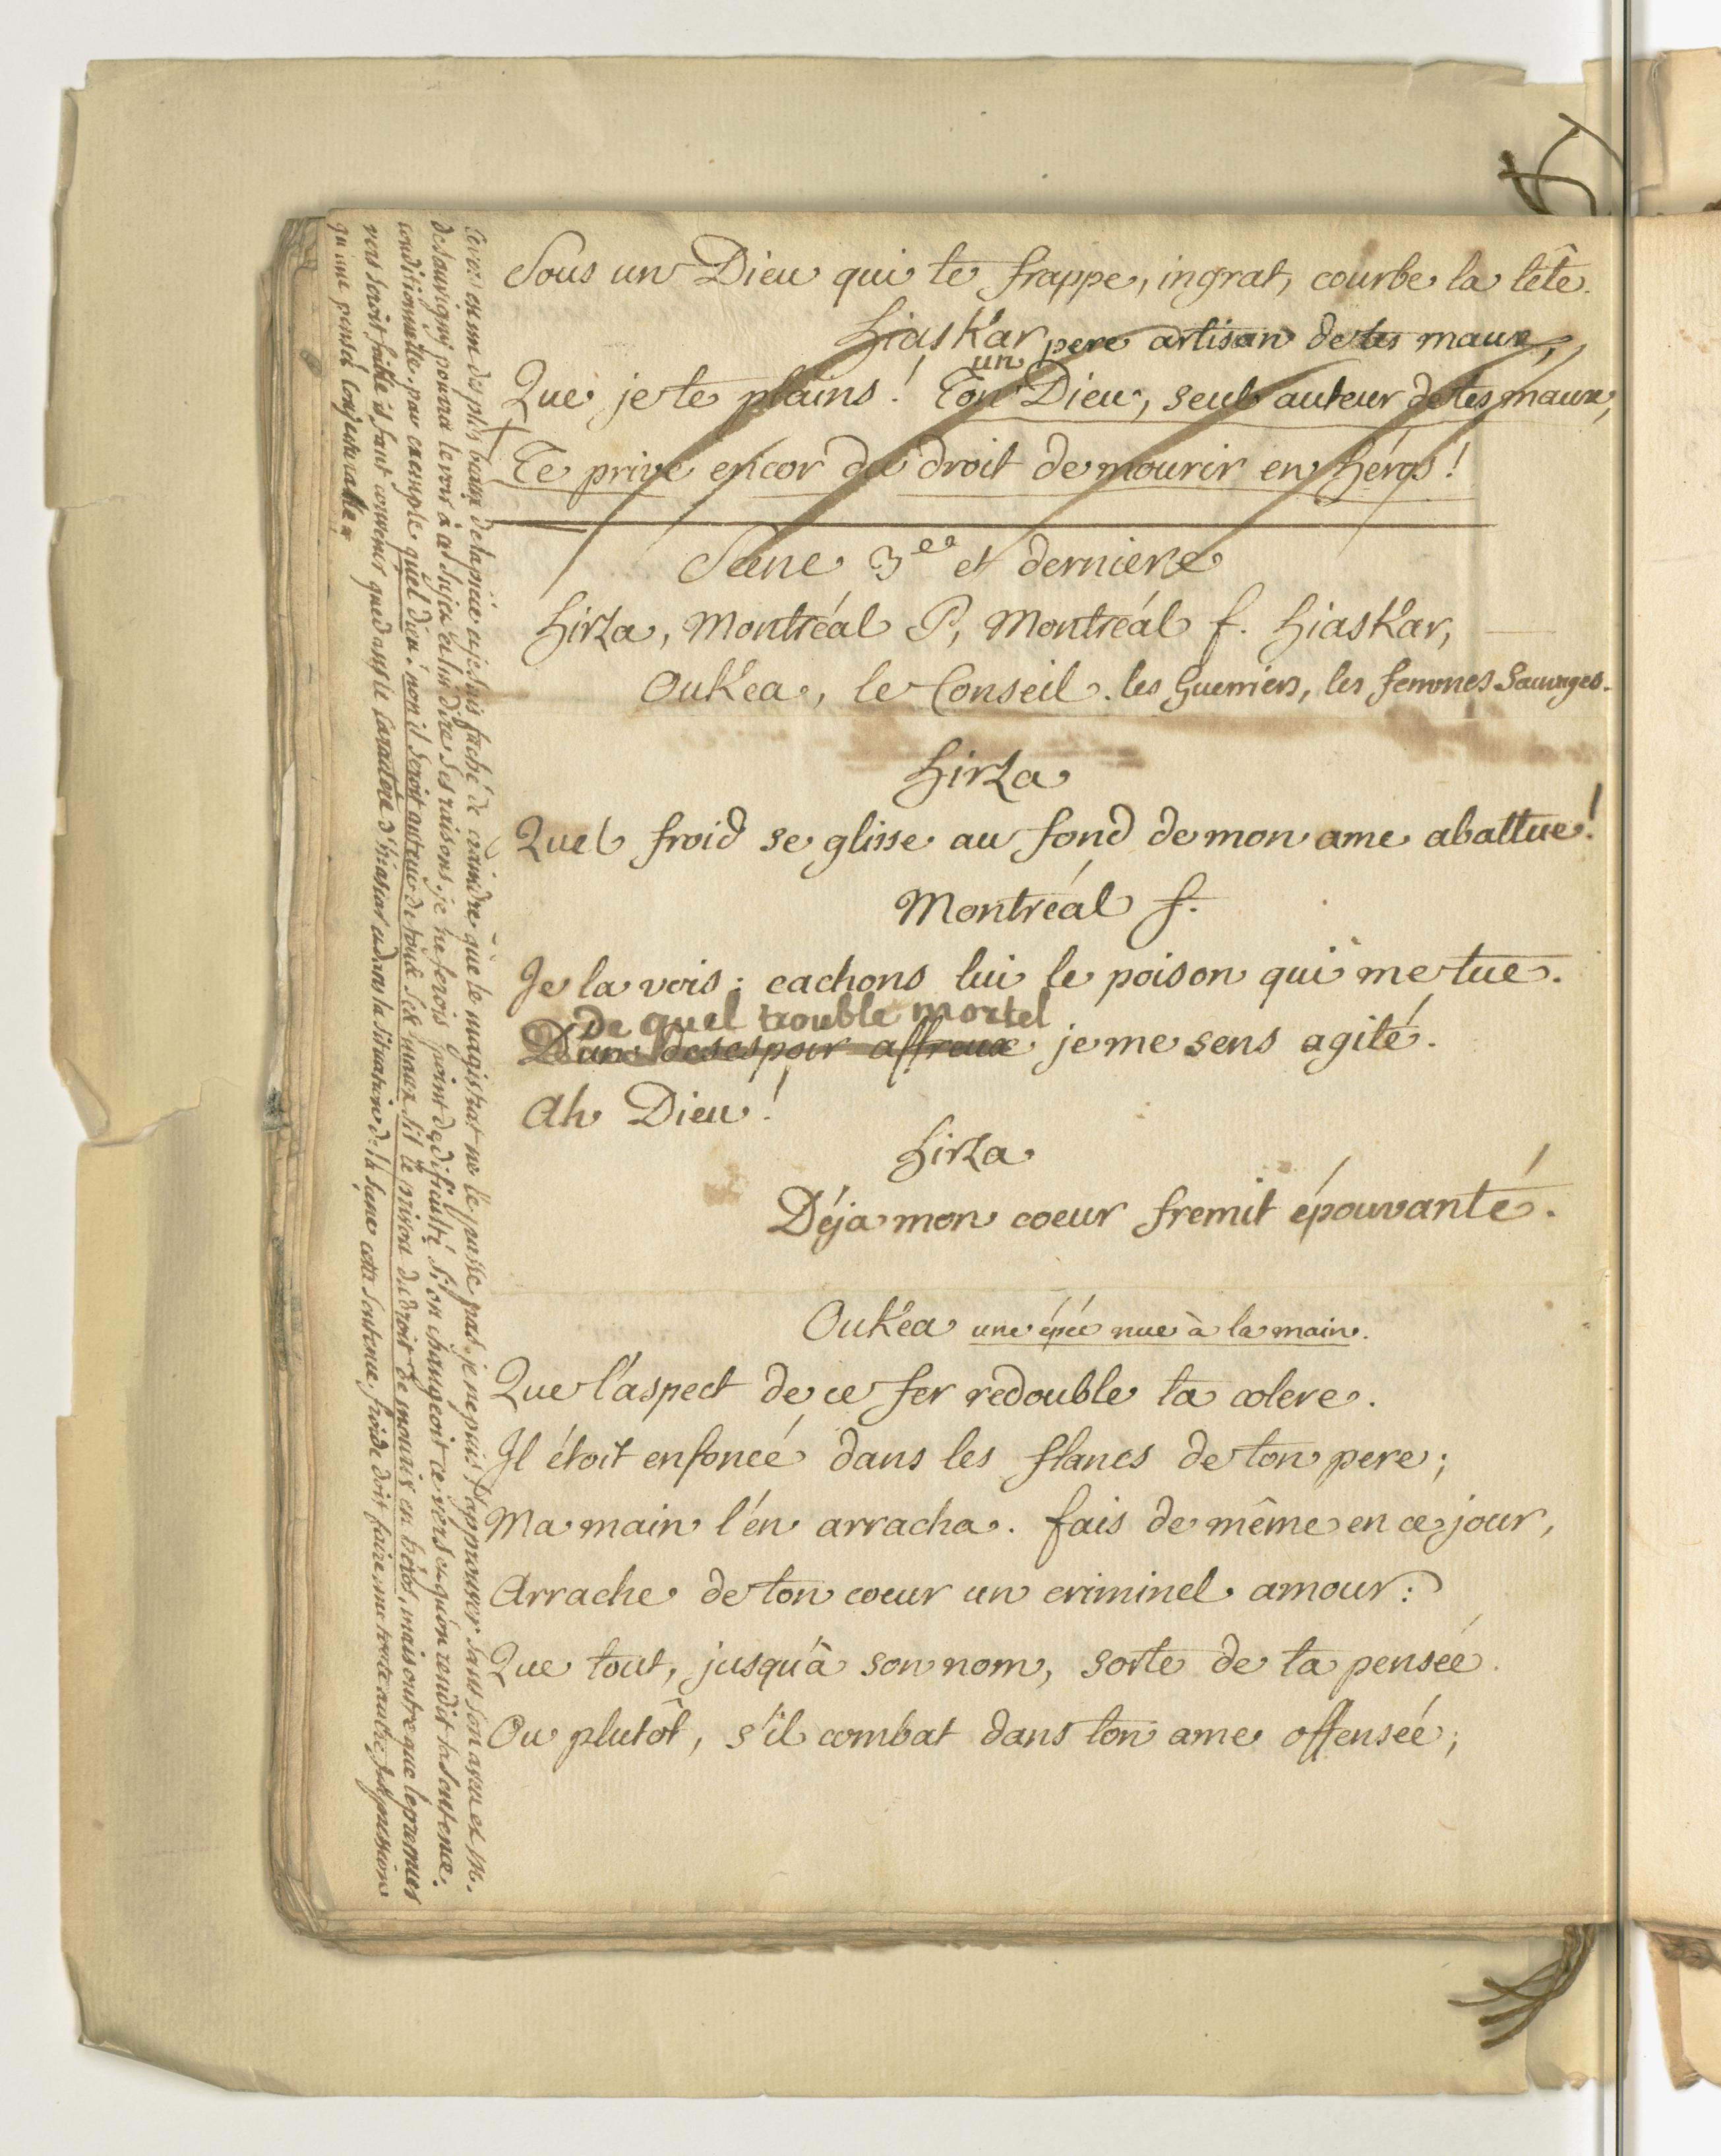 Sous un Dieu qui te frappe, ingrat, courbe la tête.
hiaskar
un pere artisan de tes maux,
Que je te plains! Ton Dieu, seul auteur de tes maux,
Te prive encor du droit de mourir en héros!
Scene 3e et derniere
hirza, Montréal P, Montréal f. hiaskar,
Oukea, le Conseil. les Guerriers, les femmes Sauvages.
hirza
Quel froid se glisse au fond de mon ame abattue!
Montréal f.
Je la vois: cachons lui le poison qui me tue.
de quel trouble mortel
D'un desespoir affreux je me sens agité.
Ah Dieu!
hirza
Déja mon coeur fremit épouvanté.
Oukéa une épée nue à la main.
Que l'aspect de ce fer redouble ta colere.
Il étoit enfoncé dans les flancs de ton pere;
Ma main l'en arracha. fais de même en ce jour,
Arrache de ton coeur un criminel amour:
Que tout, jusqu'à son nom, sorte de ta pensée.
Ou plutôt, s'il combat dans ton ame offensée;
Ce vers est un des plus beaux de la piéce et je suis faché de craindre que le magistrat ne le passe pas. je ne puis l'approuver sans son aveu et m.
de sauvigny pourra le voir à ce sujet et lui dire ses raisons. je ne ferois point de dificulté si on changeoit ce vers et qu'on rendit la sentence
conditionnelle. par exemple quel dieu! non il seroit auteur de tous ses maux s'il te priva du droit de mourir en héros, mais outre que le premier
vers seroit faible il faut convenir que dans le caractere d'hiascar et dans la situation de la scene cette sentence froide doit faire une toute autre impression
qu'une pensée conjecturalle